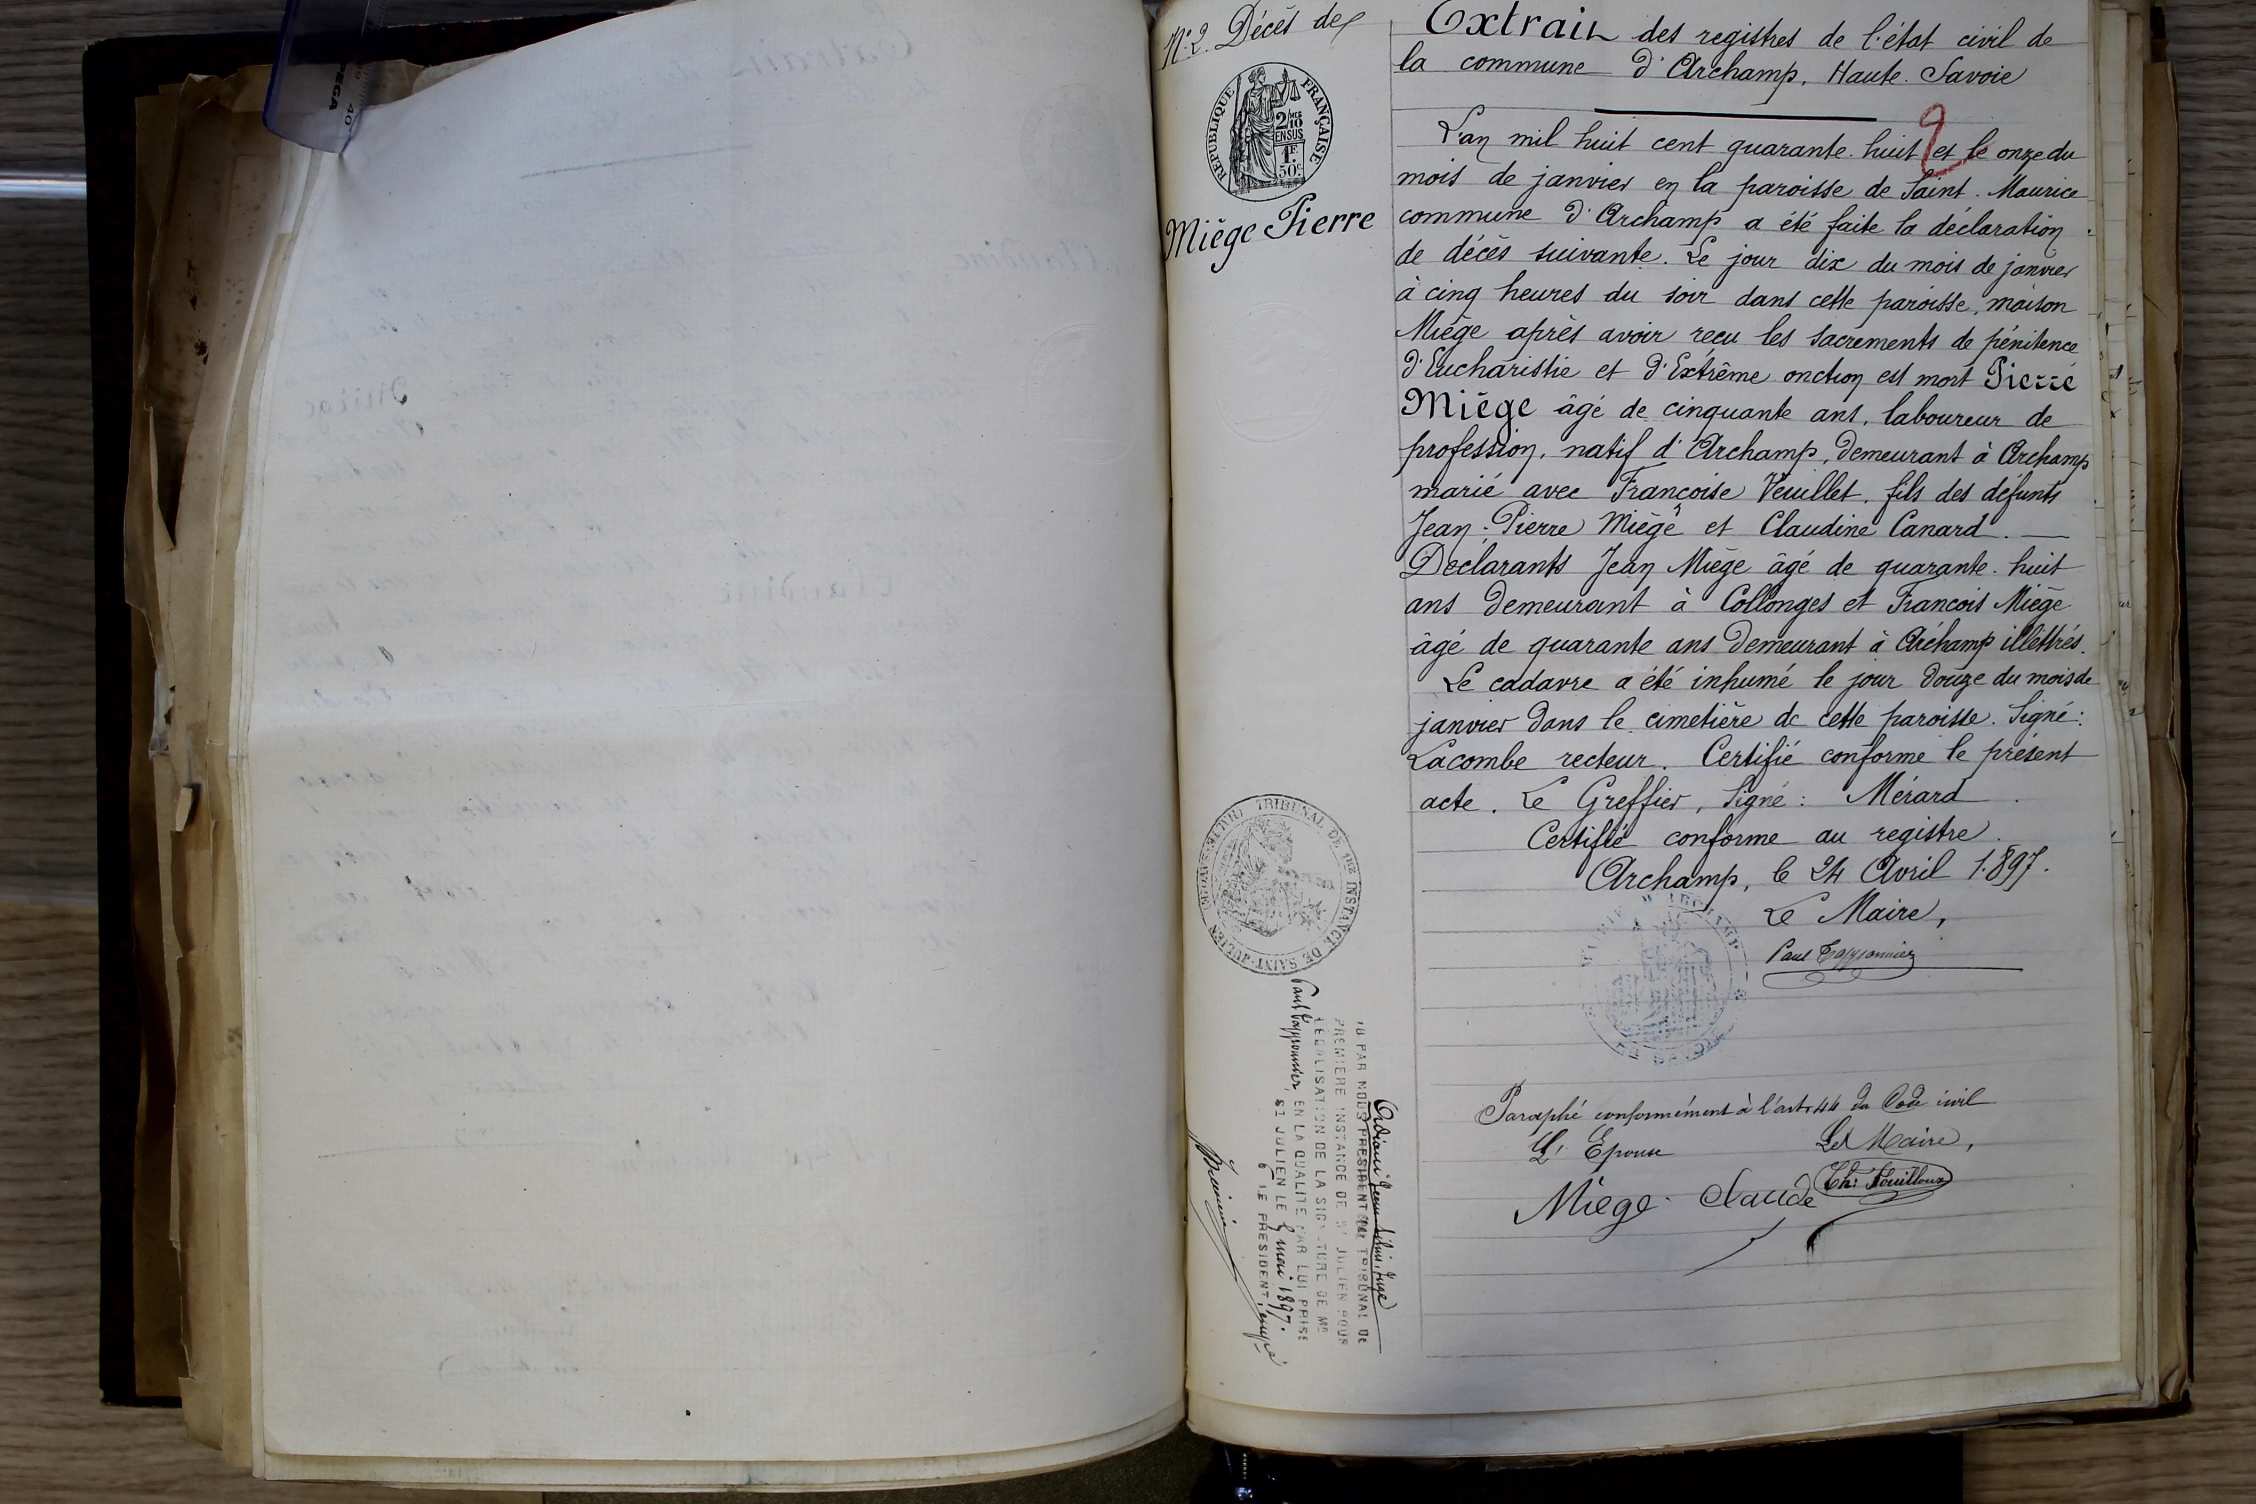 N° 2. Décès de
REPUBLIQUE FRANÇAISE
2/10 EN SUS
1F 50c
Miège Pierre
Extrait des registres de l'état civil de
la commune d'Archamp, Haute-Savoie
2
L'an mil huit cent quarante-huit et le onze du
mois de janvier en la paroisse de Saint-Maurice
commune d'Archamp a été faite la déclaration
de décès suivante. Le jour dix du mois de janvier
à cinq heures du soir dans cette paroisse, maison
Miège après avoir reçu les sacrements de pénitence
d'Eucharistie et d'Extrême onction est mort Pierre
Miège âgé de cinquante ans, laboureur de
profession, natif d'Archamp, demeurant à Archamp
marié avec Françoise Veuillet, fils des défunts
Jean-Pierre Miège et Claudine Canard. —
Déclarants Jean Miège âgé de quarante-huit
ans demeurant à Collonges et François Miège
âgé de quarante ans demeurant à Archamp illettrés.
Le cadavre a été inhumé le jour douze du mois de
janvier dans le cimetière de cette paroisse. Signé:
Lacombe recteur. Certifié conforme le présent
acte. Le Greffier, Signé: Mérard
Certifié conforme au registre.
Archamp, le 24 Avril 1.897.
Le Maire,
TRIBUNAL DE 1RE INSTANCE DE SAINT-JULIEN
VU PAR NOUS PRESIDENT DU TRIBUNAL DE
PREMIERE INSTANCE DE ST JULIEN POUR
LEGALISATION DE LA SIGNATURE DE MR
EN LA QUALITE PAR LUI PRISE
ST JULIEN LE 4 mai 1897.
LE PRESIDENT, empé
Paraphé conformément à l'art. 44 du Code civil
L'Epoux Le Maire,
Miège Claude